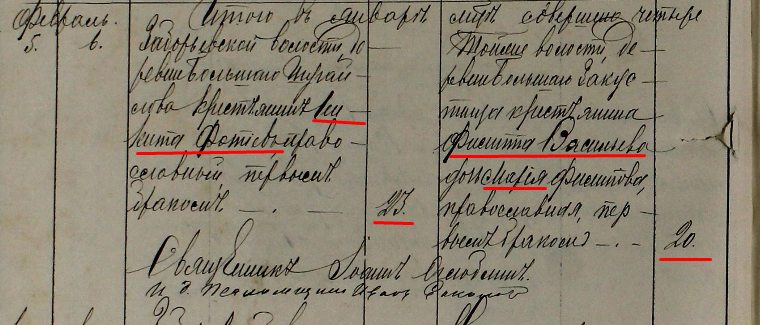 Февраль
5. 6.
Итого въ Январѣ мцѣ совершено четыре
Задорьевской волости, де-
ревни Большаго
крестьянинъ Ни-
кита Фотіевъ право-
славный первымъ
бракомъ — . — 25.
Тойже волости, де-
ревни Большаго Закус-
тища крестьянина
Филиппа Васильева
дочь Марія Филиппова,
православная, пер-
вымъ бракомъ — . — 20.
Священникъ Іоаннъ
и. д. Псаломщика Иванъ